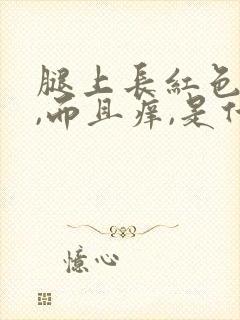 腿上長紅色
,而且痒,是什
憶心